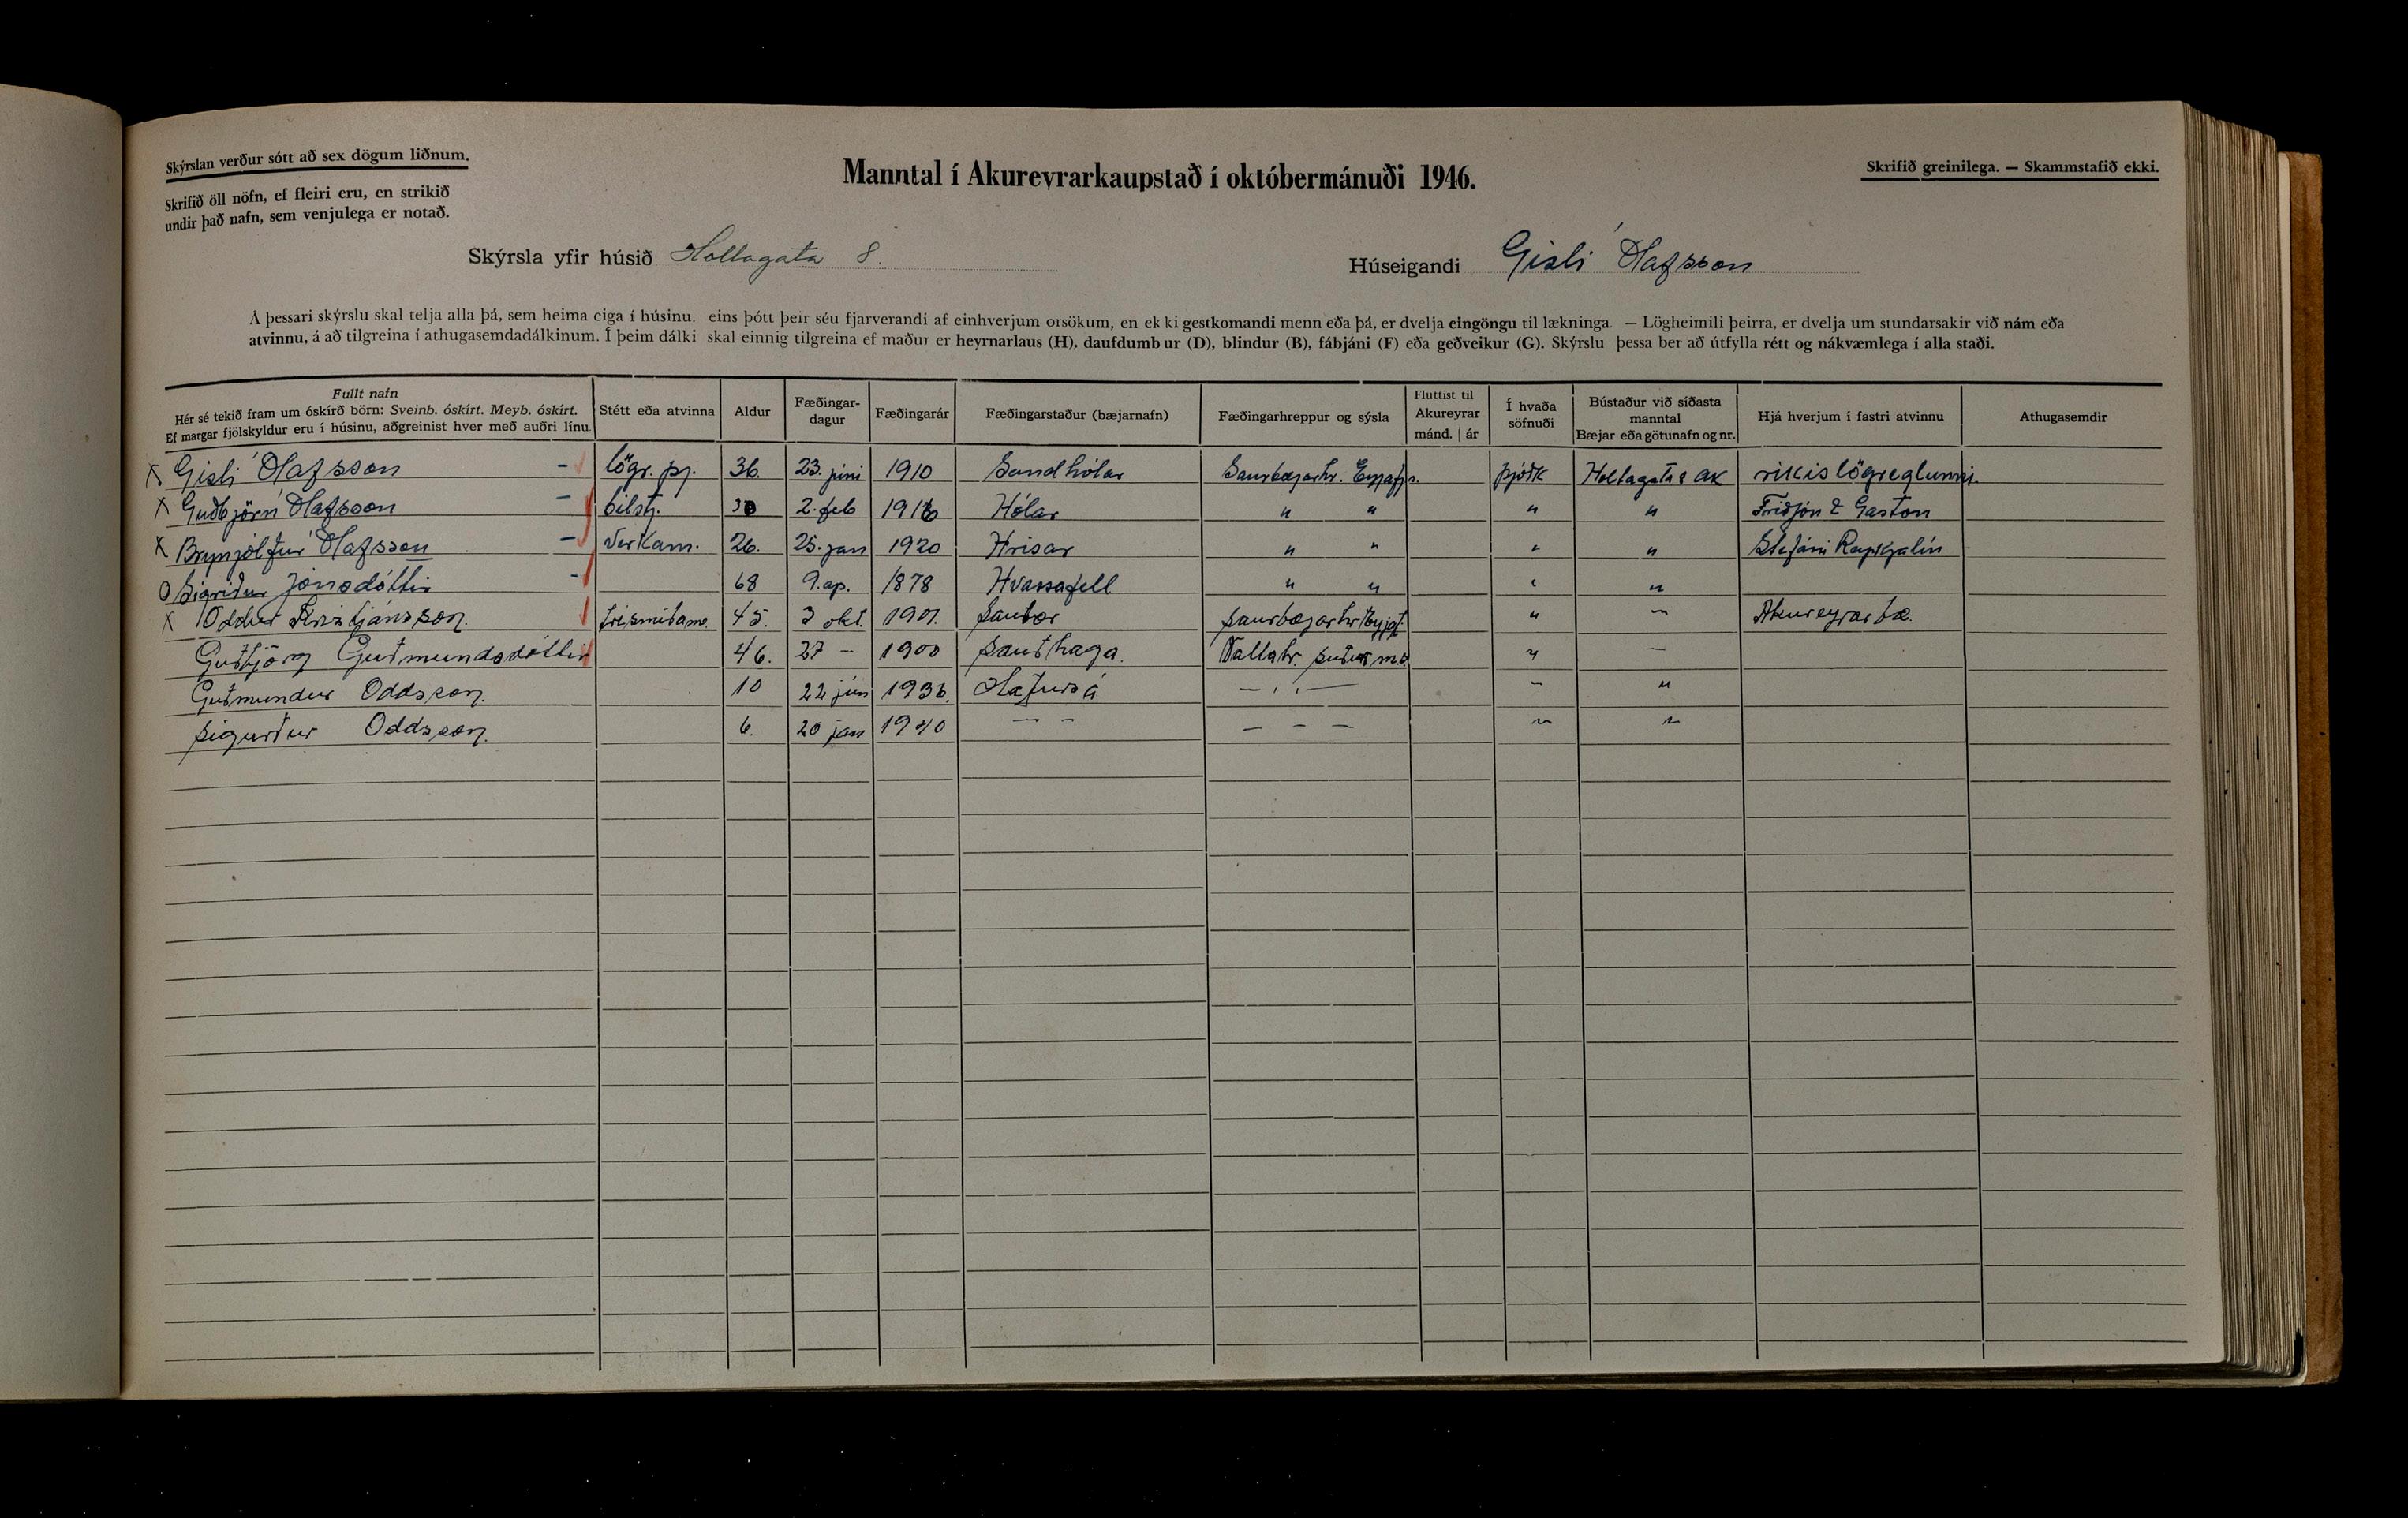 Skýrslan verður sótt að sex dögum liðnum.
Skrifið öll nöfn, ef fleiri eru, en strikið
undir það nafn, sem venjulega er notað.
Manntal í Akureyrarkaupstað í októbermánuði 1946.
Skrifið greinilega. — Skammstafið ekki.
Skýrsla yfir húsið Holtagata 8. Húseigandi Gisli Ólafsson
Á þessari skýrslu skal telja alla þá, sem heima eiga í húsinu. eins þótt þeir séu fjarverandi af einhverjum orsökum, en ekki gestkomandi menn eða þá, er dvelja eingöngu til lækninga. — Lögheimili þeirra, er dvelja um stundarsakir við nám eða
atvinnu, á að tilgreina í athugasemdadálkinum. Í þeim dálki skal einnig tilgreina ef maður er heyrnarlaus (H), daufdumbur (D), blindur (B), fábjáni (F) eða geðveikur (G). Skýrslu þessa ber að útfylla rétt og nákvæmlega í alla staði.
Fullt nafn
Hér sé tekið fram um óskírð börn: Sveinb. óskírt. Meyb. óskírt.
Ef margar fjölskyldur eru í húsinu, aðgreinist hver með auðri línu.
Stétt eða atvinna
Aldur
Fæðingar-
dagur
Fæðingarár
Fæðingarstaður (bæjarnafn)
Fæðingarhreppur og sýsla
Fluttist til
Akureyrar
mánd. | ár
Í hvaða
söfnuði
Bústaður við síðasta
manntal
Bæjar eða götunafn og nr.
Hjá hverjum í fastri atvinnu
Athugasemdir
X Gisli Ólafsson - lögr. þj. 36. 23. júni 1910 Sandhólar Saurbæjarhr. Eyjafj.s. þjóðk Holtagata 8 AK rikislögreglunni.
X Guðbjörn Ólafsson - bilstj. 30 2. feb 1916 Hólar " " " " Friðjón & Gaston
X Brynjólfur Ólafsson - Verkam. 26. 25. jan 1920 Hrisar " " " "
O Sigriður Jónsdóttir - 68 9. ap. 1878 Hvassafell " " " "
X Oddur Kristjánsson. trésmíðam. 45. 3 okt. 1901. Saurbæjarhr " — Akureyrarbæ.
Guðbjörg Guðmundsdóttir 46. 27 — 1900 Sauðhaga. Vallahr. " —
Guðmundur Oddsson. 10 22 jún 1936. Hafursá — " — — "
Sigurður Oddsson. 6. 20 jan 1940 — — — — — " "